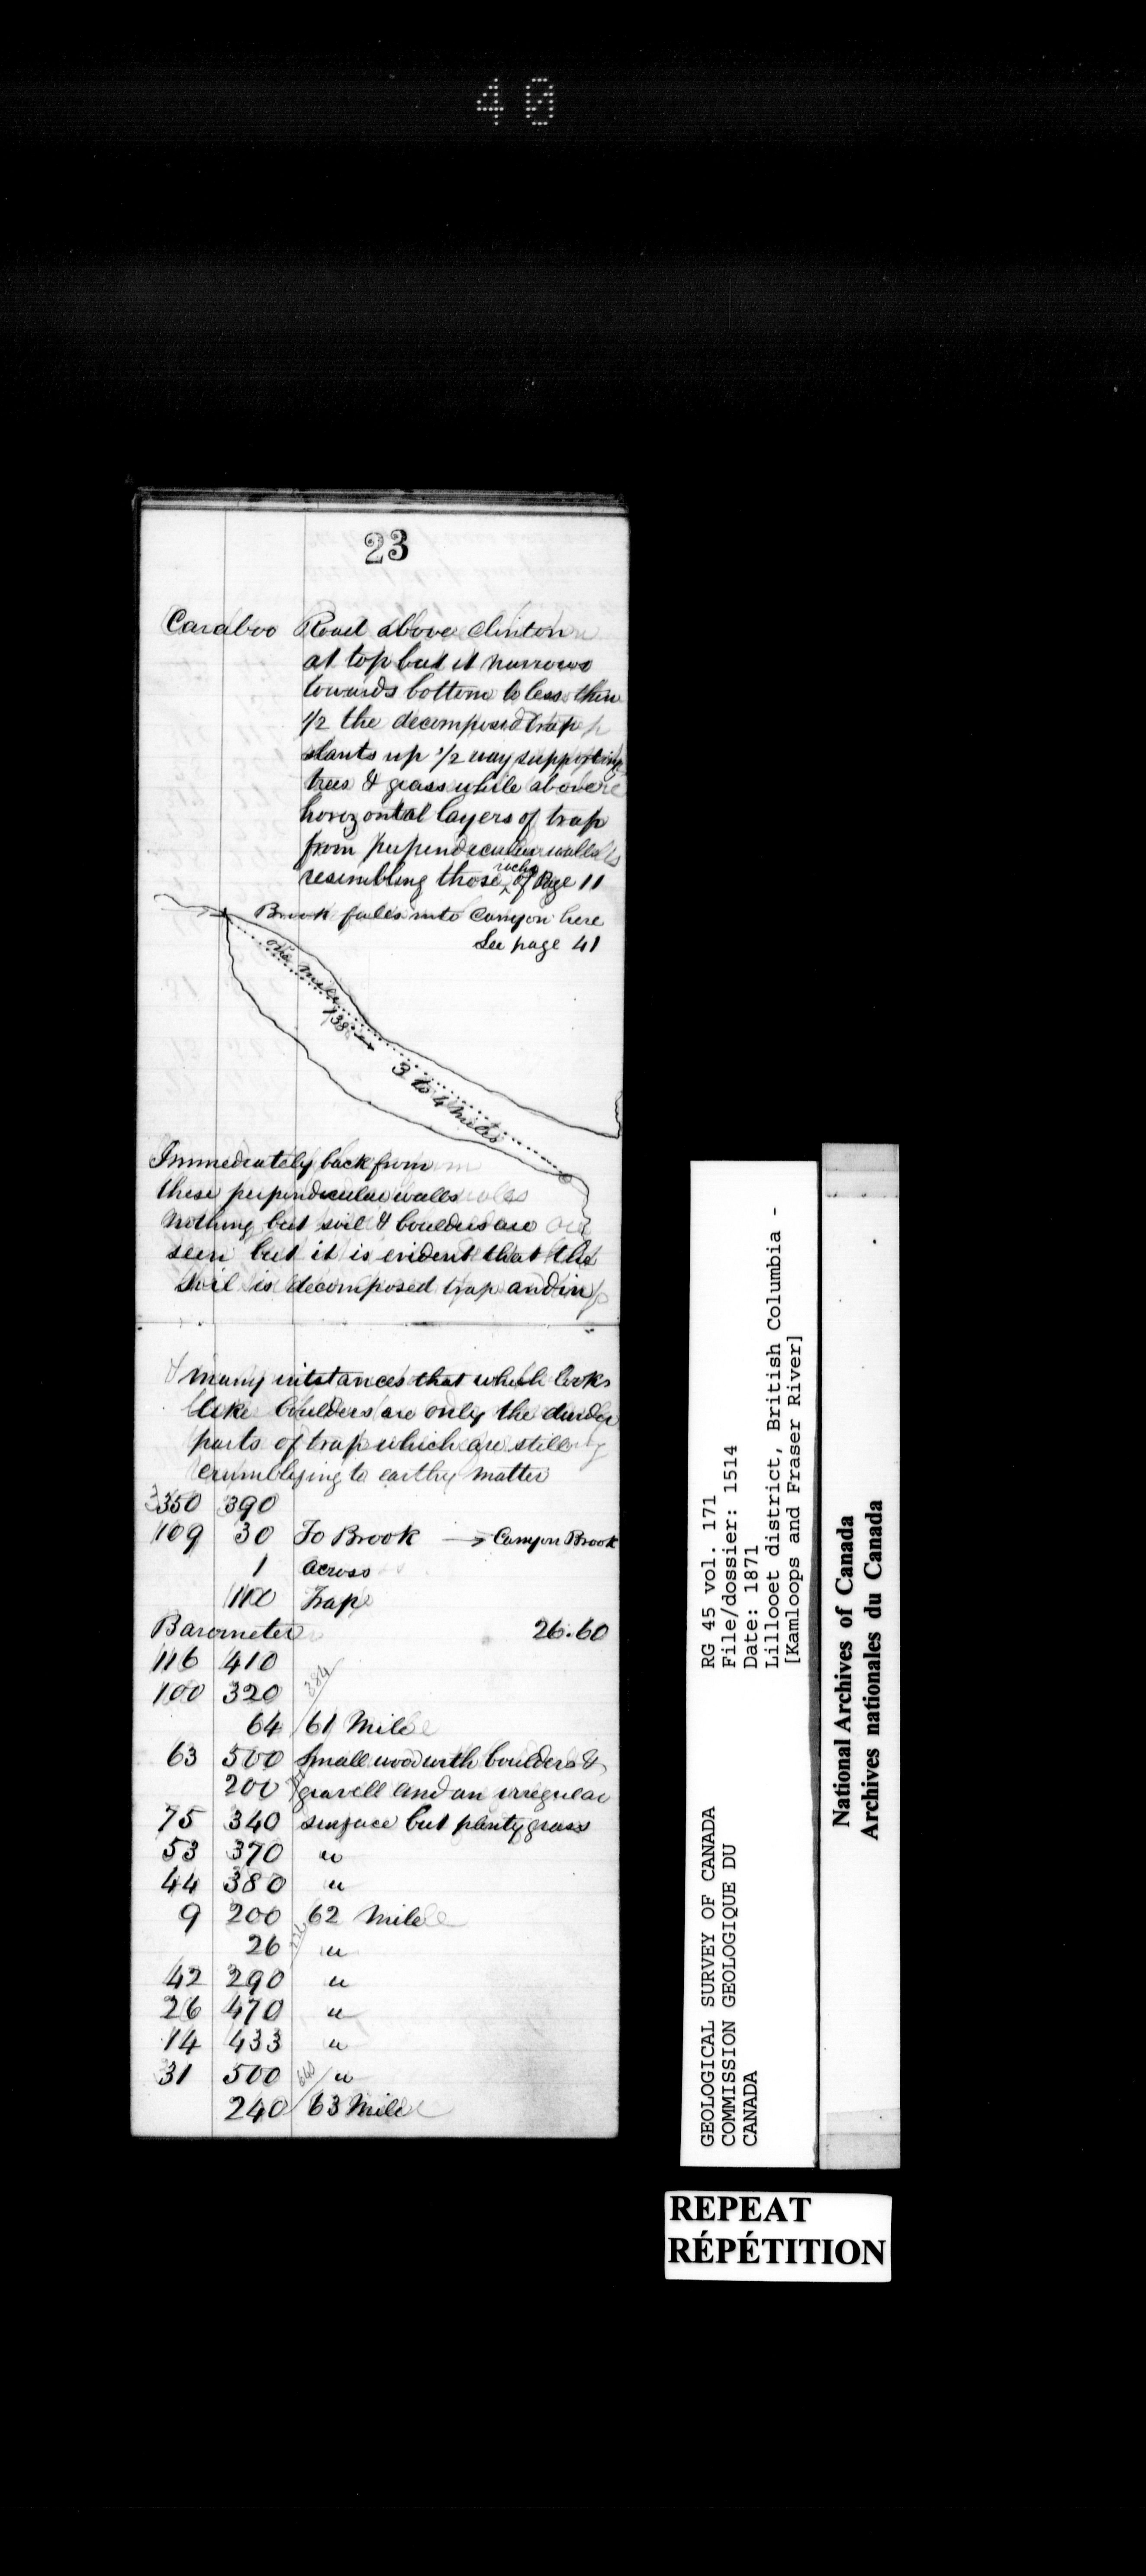 40
23
Caraboo Road above Clinton
at top but it narrows
towards bottom to less then
1/2 the decomposed trap
slants up 1/2 way supporting
trees & grass while above
horozontal layers of trap
from perpendicular walls
rocks
resembling those of Page 11
Brook falls into Canyon here
See page 41
one mile
138
3 to 4 miles
Immediately back from
these perpendicular walls
nothing but soil & boulders are
seen but it is evident that the
soil is decomposed trap and in
many intstances that which looks
like boulders are only the
parts of trap which are still
crumbleing to earthy matter
350 390
109 30 To Brook → Canyon Brook
1 across
100 Trap
Barometer 26.60
116 410
100 320 384
64 61 Mile
63 500 Small wood with boulders &
200 gravell and an irregular
75 340 surface but plenty grass
53 370 "
44 380 "
9 200 62 Mile
26 "
42 290 "
26 470 "
14 433 "
31 500 "
240 63 Mile
RG 45 vol. 171
File/dossier: 1514
Date: 1871
Lillooet district, British Columbia -
[Kamloops and Fraser River]
GEOLOGICAL SURVEY OF CANADA
COMMISSION GEOLOGIQUE DU
CANADA
National Archives of Canada
Archives nationales du Canada
REPEAT
RÉPÉTITION